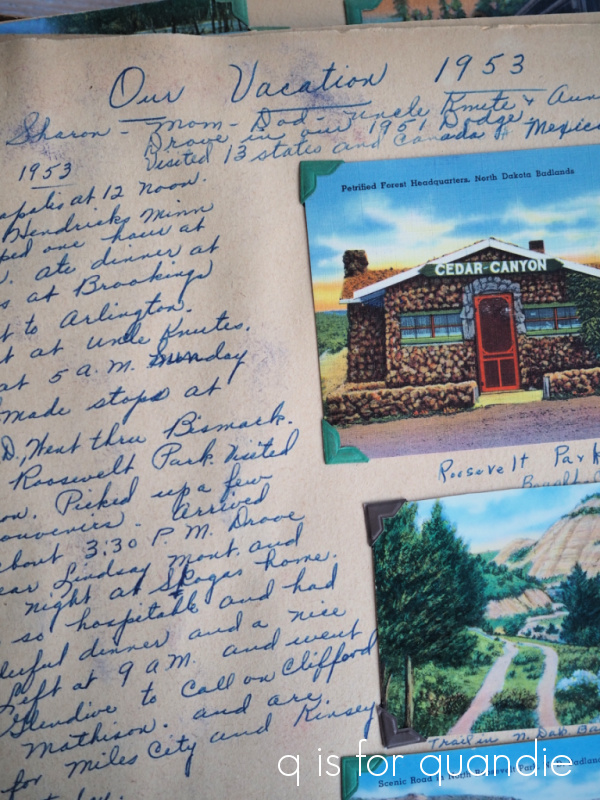 Our Vacation 1953
Sharon - Mom - Dad - Uncle Knute & Aun
Drove in our 1951 Dodge
Visited 13 states and Canada & Mexico
1953
apolis at 12 noon.
Hendricks Minn
ped one hour at
ate dinner at
s at Brookings
t to Arlington.
t at Uncle Knutes.
at 5 A.M. Monday
made stops at
D., Went thru Bismark.
Roosevelt Park. Visited
on. Picked up a few
souvenirs - Arrived
about 3:30 P.M. Drove
ear Lindsay Mont. and
night at Skogas home.
so hospitable and had
derful dinner and a nice
Left at 9 A.M. and went
Glendive to call on Clifford
Mathison. and are
for Miles City and Kinsey
Petrified Forest Headquarters, North Dakota Badlands
CEDAR-CANYON
Roosevelt Park
Trail in N. Dak. Ba
Scenic Road in North Roosevelt Park, Badlands
q is for quandie